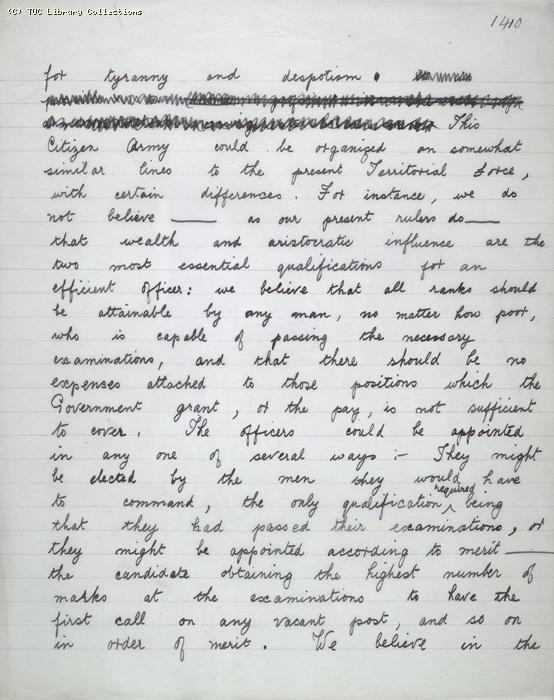 (C) TUC Library Collections
1410
for tyranny and despotism.
This
Citizen Army could be organized on somewhat
similar lines to the present Territorial Force,
with certain differences. For instance, we do
not believe —— as our present rulers do——
that wealth and aristocratic influence are the
two most essential qualifications for an
efficient officer: we believe that all ranks should
be attainable by any man, no matter how poor,
who is capable of passing the necessary
examinations, and that there should be no
expenses attached to those positions which the
Government grant, or the pay, is not sufficient
to cover. The officers could be appointed
in any one of several ways :- They might
be elected by the men they would have
to command, the only qualification required being
that they had passed their examinations, or
they might be appointed according to merit ——
the candidate obtaining the highest number of
marks at the examinations to have the
first call on any vacant post, and so on
in order of merit. We believe in the